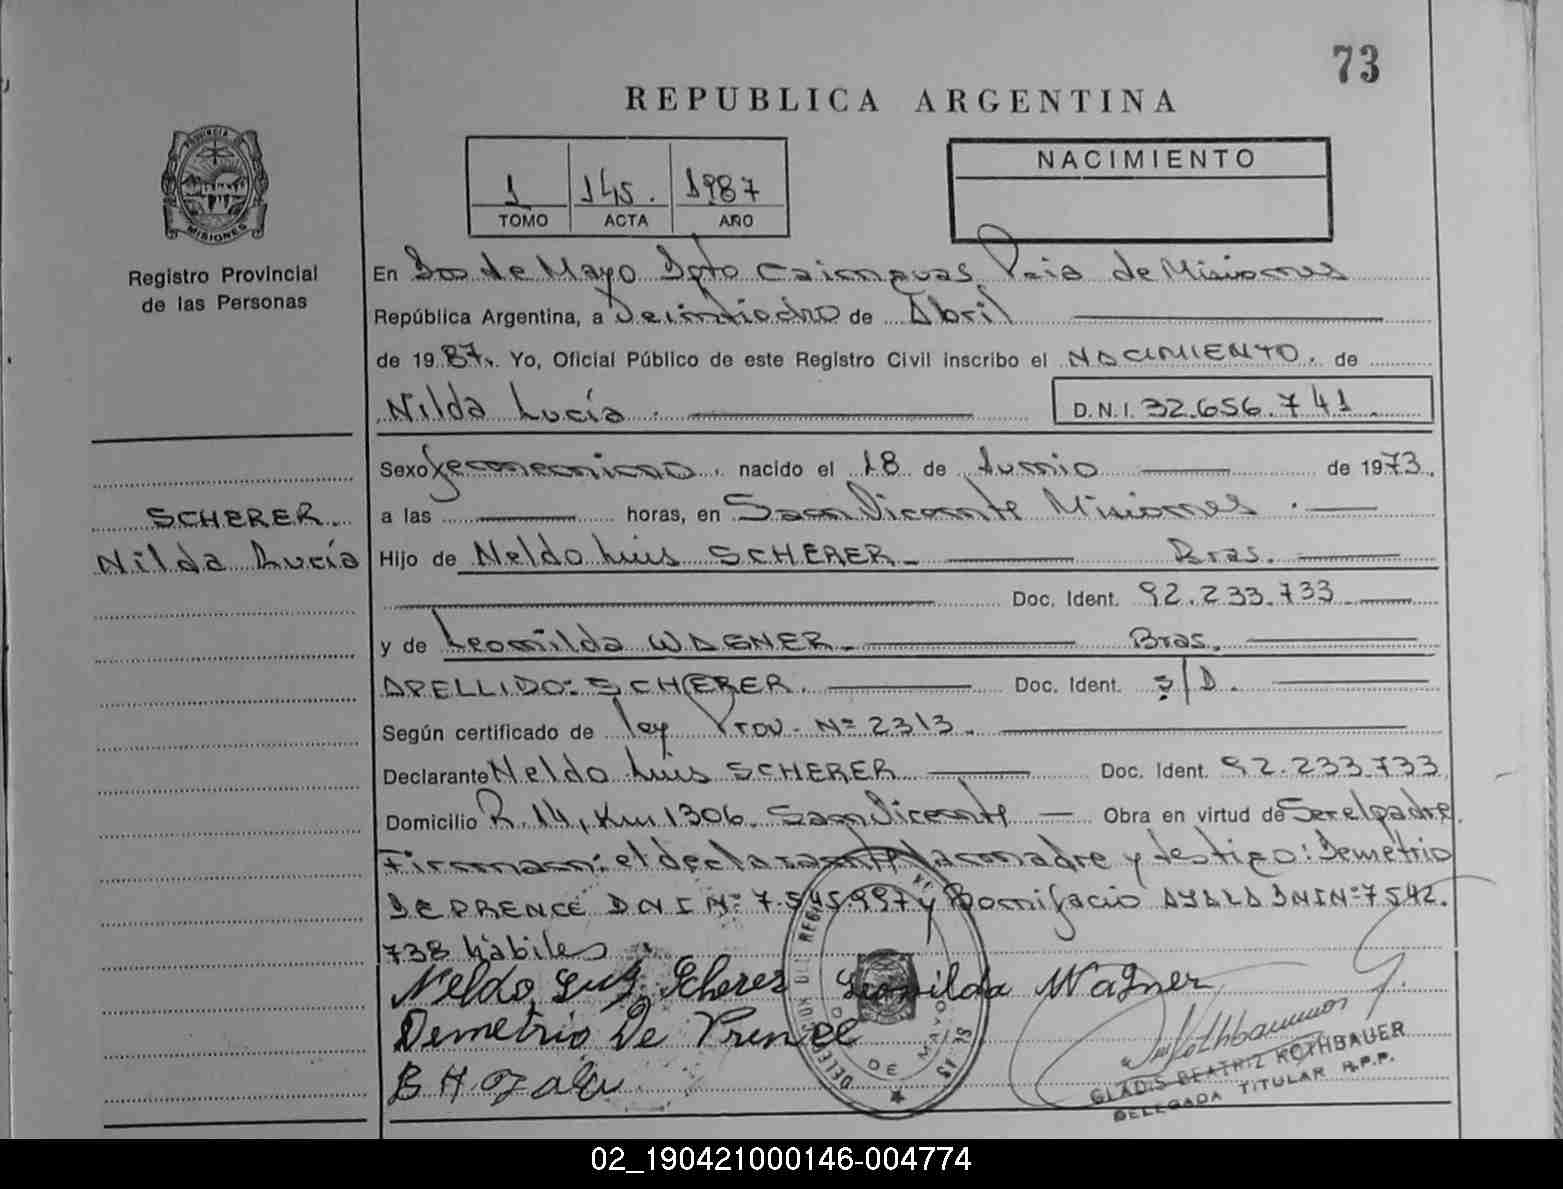 73
REPUBLICA ARGENTINA
PROVINCIA DE
MISIONES
Registro Provincial
de las Personas
1 145. 1987
TOMO ACTA AÑO
NACIMIENTO
En Dos de Mayo Dpto Cainguas Pcia de Misiones
República Argentina, a Veintiocho de Abril
de 1987. Yo, Oficial Público de este Registro Civil inscribo el NACIMIENTO. de
Nilda Lucía. D.N.I. 32.656.741.
Sexo femenino. nacido el 18 de Junio de 1973.
SCHERER
Nilda Lucía
a las horas, en San Vicente Misiones.
Hijo de Neldo Luis SCHERER Bras.
Doc. Ident. 92.233.733
y de Leonilda WAGNER Bras.
APELLIDO: SCHERER. Doc. Ident. S/D.
Según certificado de ley Prov. Nº 2313.
Declarante Neldo Luis SCHERER Doc. Ident. 92.233.733
Domicilio R. 14, Km 1306. San Vicente Obra en virtud de Ser el padre.
Firman: el declarante la madre y testigo: Demetrio
DEPRENCE DNI Nº 7.545.997 y Bonifacio AYALA DNI Nº 7542.
738 hábiles
Neldo Luiz Scherer Leonilda Wagner
Demetrio De Prence
B. H.
DE MAYO
GLADIS BEATRIZ ROTHBAUER
DELEGADA TITULAR R.P.P.
02_190421000146-004774